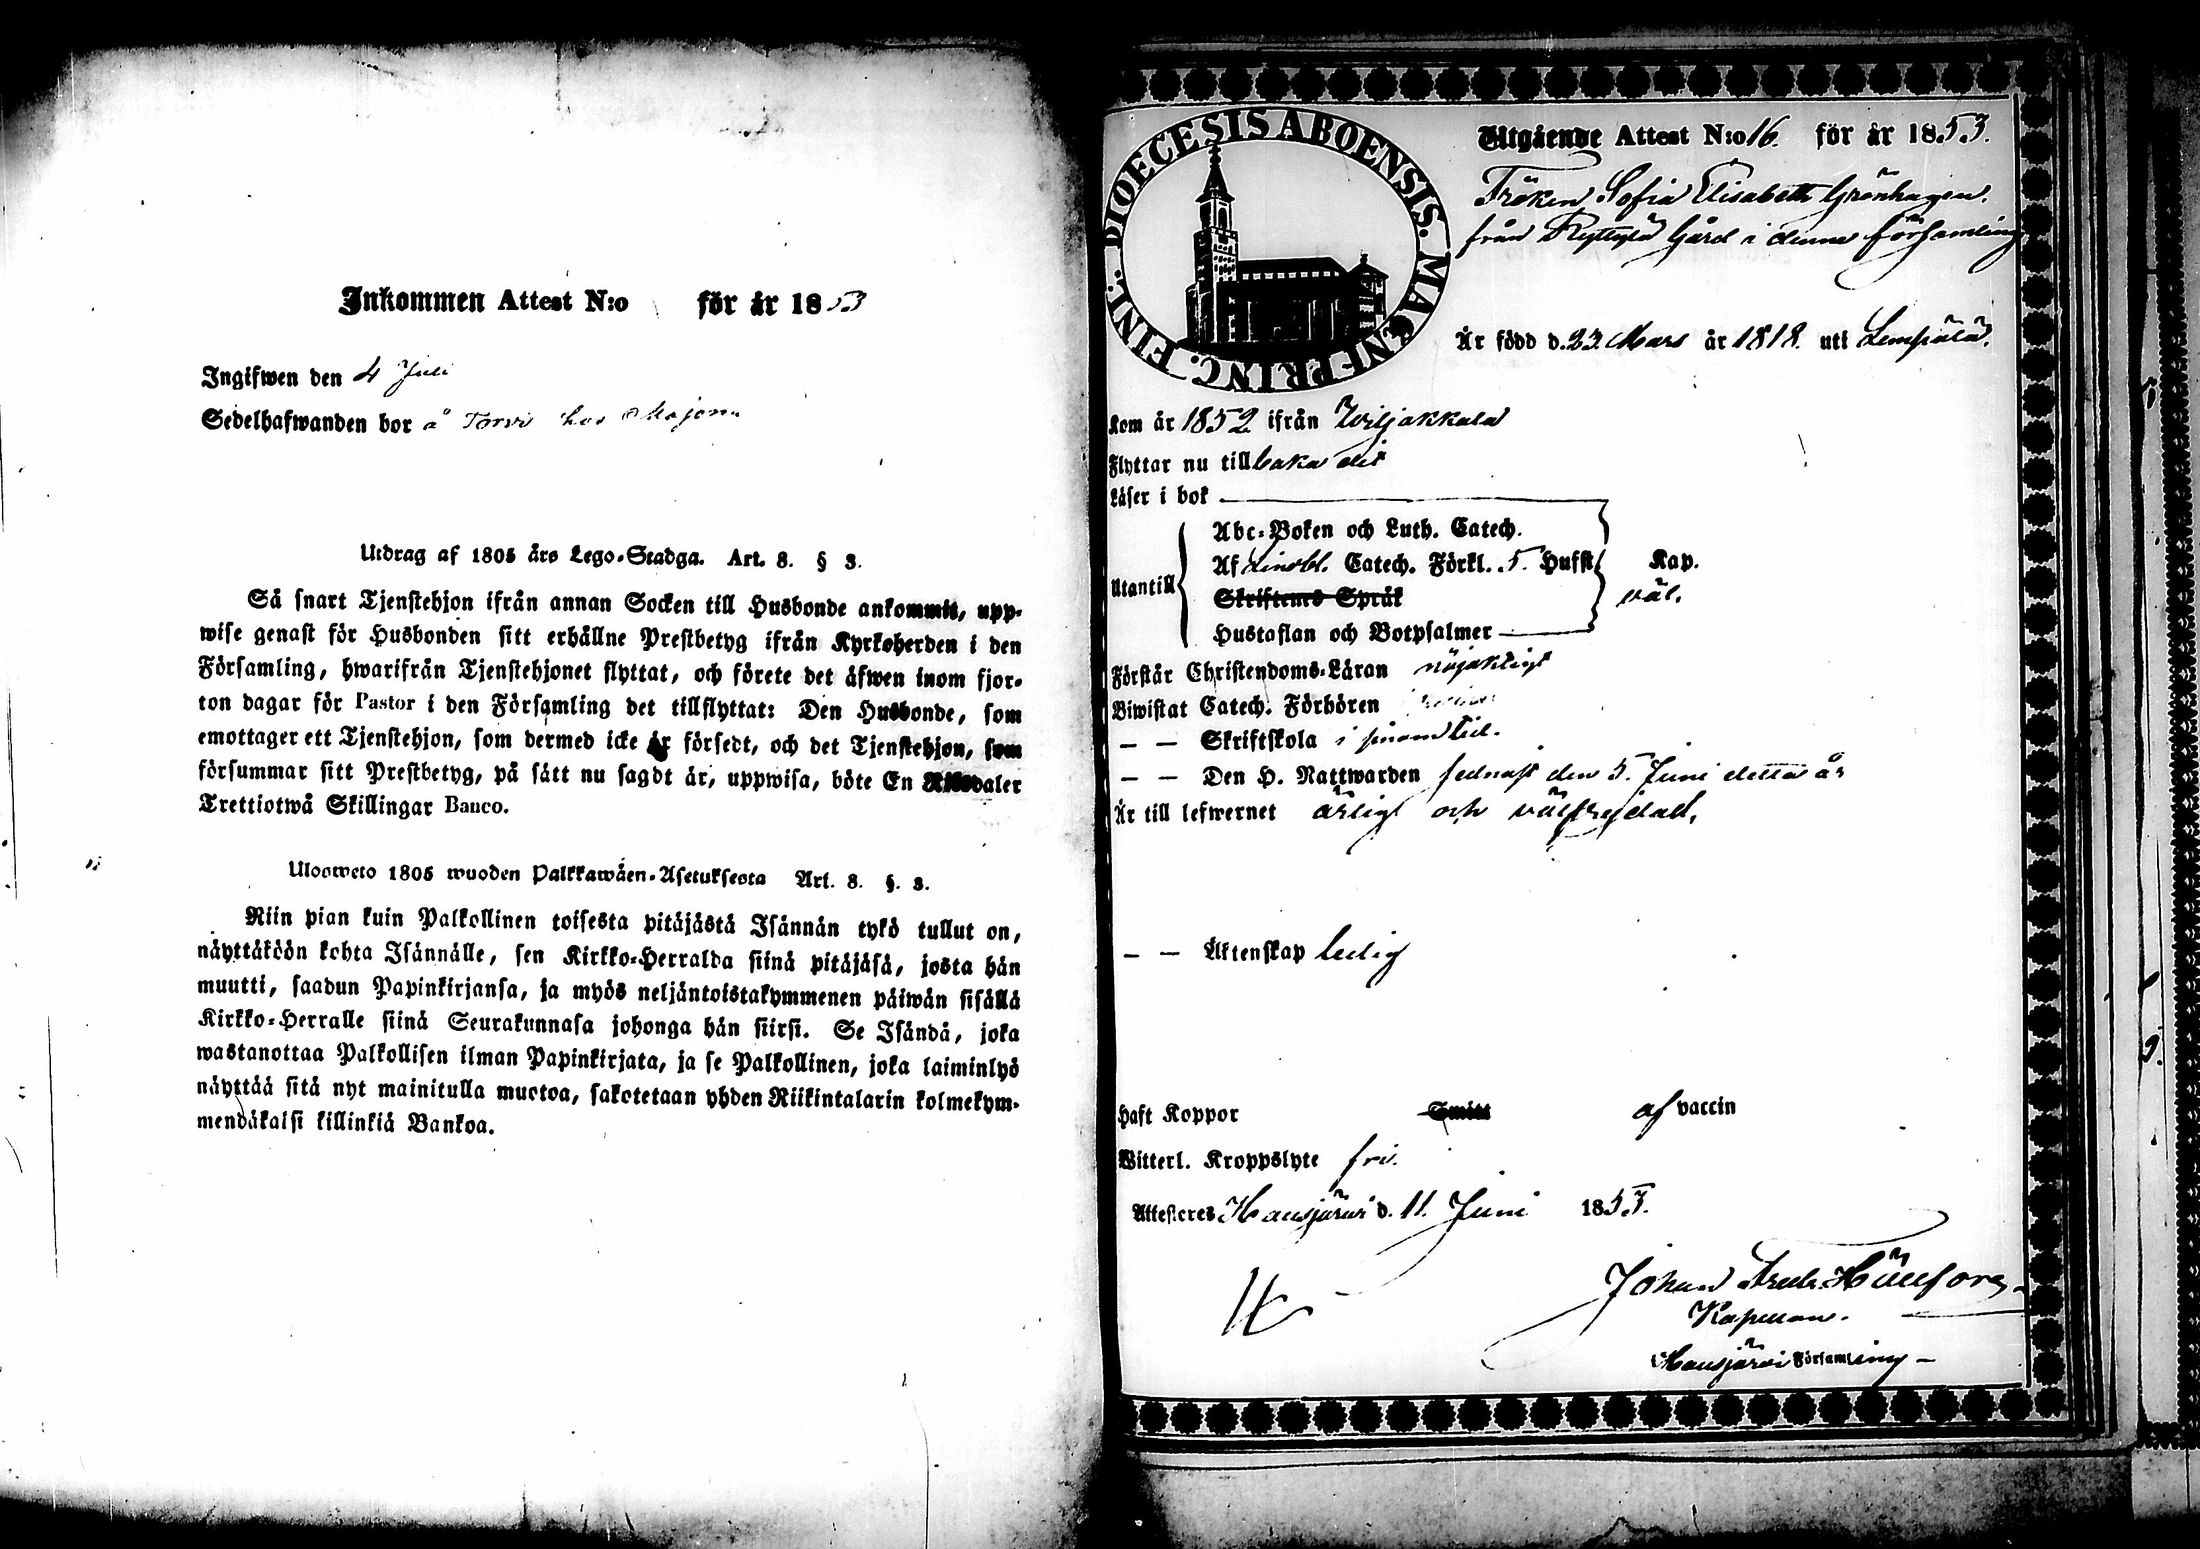 Inkommen Attest N:o för år 1853
Ingifwen den 4 Juli
Sedelhafwanden bor å Torvi hos Majorn
Utdrag af 1805 års Lego-Stadga. Art. 8. § 3.
Så snart Tjenstehjon ifrån annan Socken till Husbonde ankommit, upp-
wise genast för Husbonden sitt erhållne Prestbetyg ifrån Kyrkoherden i den
Församling, hwarifrån Tjenstehjonet flyttat, och förete det äfwen inom fjor-
ton dagar för Pastor i den Församling det tillflyttat: Den Husbonde, som
emottager ett Tjenstehjon, som dermed icke är försedt, och det Tjenstehjon, som
försummar sitt Prestbetyg, på sätt nu sagdt är, uppwisa, böte En Riksdaler
Trettiotwå Skillingar Banco.
Ulosweto 1805 wuoden Palkkawäen-Asetuksesta Art. 8. §. 3.
Niin pian kuin Palkollinen toisesta pitäjästä Isännän tykö tullut on,
näyttäköön kohta Isännälle, sen Kirkko-Herralda siinä pitäjäsä, josta hän
muutti, saadun Papinkirjansa, ja myös neljäntoistakymmenen päiwän sisällä
Kirkko-Herralle siinä Seurakunnasa johonga hän siirsi. Se Isändä, joka
wastanottaa Palkollisen ilman Papinkirjata, ja se Palkollinen, joka laiminlyö
näyttää sitä nyt mainitulla muotoa, sakotetaan yhden Riikintalarin kolmekym-
mendäkaksi killinkiä Bankoa.
DIOECESIS ABOENSIS. MAGNI PRINC. FINL.
Utgående Attest N:o 16. för år 1853.
Fröken Sofia Elisabeth Grönhagen.
från Ryttylä Gård i denna församling
Är född d. 23. Mars år 1818. uti Lempälä.
Kom år 1852 ifrån Wiljakkala
Flyttar nu tillbaka dit
Läser i bok
Abc-Boken och Luth. Catech.
Utantill Af Lindbl. Catech. Förkl. 5. Hufst Kap.
Skriftens Språk väl.
Hustaflan och Botpsalmer
Förstår Christendoms-Läran nöjaktigt
Biwistat Catech. Förhören
— — Skriftskola i sinom tid.
— — Den H. Nattwarden sednast den 5. Juni detta år
Är till lefwernet ärligt och välfrejdad,
— — Äktenskap ledig
Haft Koppor Smitt af vaccin
Witterl. Kroppslyte fri.
Attesteres Hausjärvi d. 11. Juni 1853.
Johan Fredr.
Kapellan.
Hausjärvi Församling